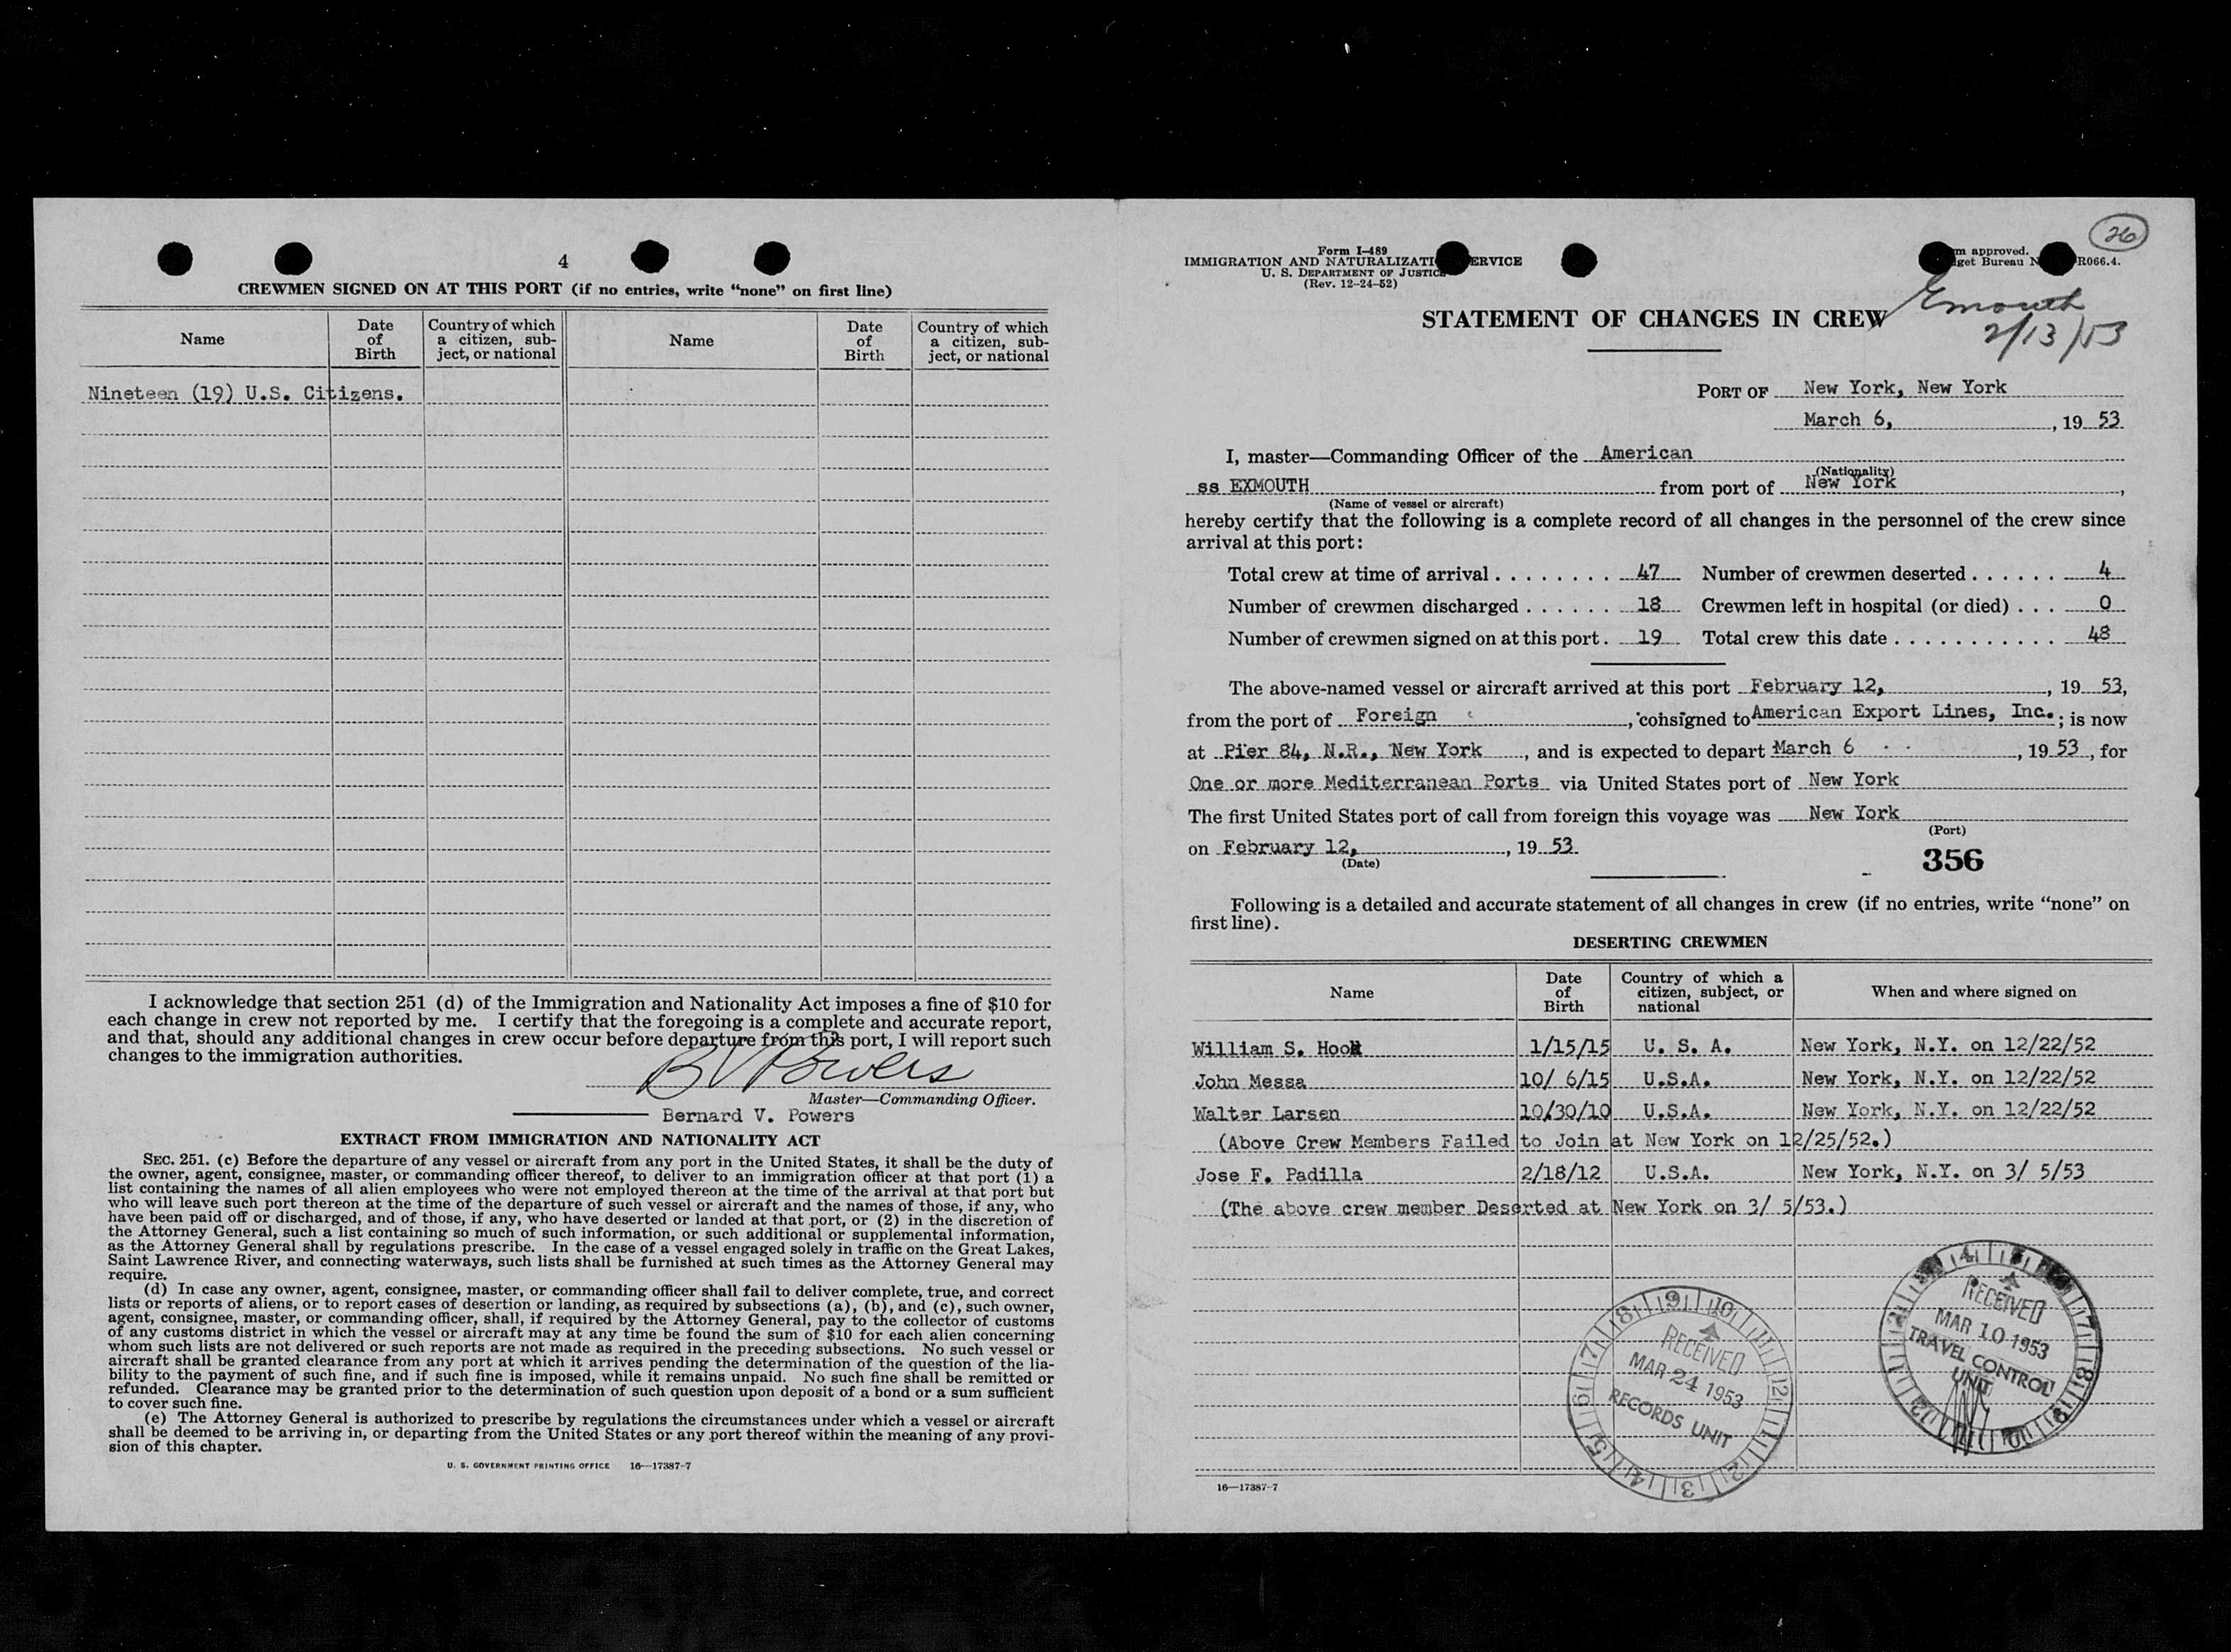 4
CREWMEN SIGNED ON AT THIS PORT (if no entries, write “none” on first line)
Name
Date of Birth
Country of which a citizen, subject, or national
Name
Date of Birth
Country of which a citizen, subject, or national
Nineteen (19) U.S. Citizens.
I acknowledge that section 251 (d) of the Immigration and Nationality Act imposes a fine of $10 for
each change in crew not reported by me. I certify that the foregoing is a complete and accurate report,
and that, should any additional changes in crew occur before departure from this port, I will report such
changes to the immigration authorities.
B V Powers
Master—Commanding Officer.
Bernard V. Powers
EXTRACT FROM IMMIGRATION AND NATIONALITY ACT
SEC. 251. (c) Before the departure of any vessel or aircraft from any port in the United States, it shall be the duty of
the owner, agent, consignee, master, or commanding officer thereof, to deliver to an immigration officer at that port (1) a
list containing the names of all alien employees who were not employed thereon at the time of the arrival at that port but
who will leave such port thereon at the time of the departure of such vessel or aircraft and the names of those, if any, who
have been paid off or discharged, and of those, if any, who have deserted or landed at that port, or (2) in the discretion of
the Attorney General, such a list containing so much of such information, or such additional or supplemental information,
as the Attorney General shall by regulations prescribe. In the case of a vessel engaged solely in traffic on the Great Lakes,
Saint Lawrence River, and connecting waterways, such lists shall be furnished at such times as the Attorney General may
require.
(d) In case any owner, agent, consignee, master, or commanding officer shall fail to deliver complete, true, and correct
lists or reports of aliens, or to report cases of desertion or landing, as required by subsections (a), (b), and (c), such owner,
agent, consignee, master, or commanding officer, shall, if required by the Attorney General, pay to the collector of customs
of any customs district in which the vessel or aircraft may at any time be found the sum of $10 for each alien concerning
whom such lists are not delivered or such reports are not made as required in the preceding subsections. No such vessel or
aircraft shall be granted clearance from any port at which it arrives pending the determination of the question of the lia-
bility to the payment of such fine, and if such fine is imposed, while it remains unpaid. No such fine shall be remitted or
refunded. Clearance may be granted prior to the determination of such question upon deposit of a bond or a sum sufficient
to cover such fine.
(e) The Attorney General is authorized to prescribe by regulations the circumstances under which a vessel or aircraft
shall be deemed to be arriving in, or departing from the United States or any port thereof within the meaning of any provi-
sion of this chapter.
U. S. GOVERNMENT PRINTING OFFICE 16—17387-7
26
Form I-489
IMMIGRATION AND NATURALIZATI ERVICE
U. S. DEPARTMENT OF JUSTICE
(Rev. 12-24-52)
m approved.
get Bureau N R066.4.
STATEMENT OF CHANGES IN CREW
Exmouth
2/13/53
PORT OF New York, New York
March 6, , 19 53
I, master—Commanding Officer of the American
(Nationality)
ss EXMOUTH from port of New York ,
(Name of vessel or aircraft)
hereby certify that the following is a complete record of all changes in the personnel of the crew since
arrival at this port:
Total crew at time of arrival . . . . . . . . 47 Number of crewmen deserted . . . . . . 4
Number of crewmen discharged . . . . . . 18 Crewmen left in hospital (or died) . . . 0
Number of crewmen signed on at this port . 19 Total crew this date . . . . . . . . . . . 48
The above-named vessel or aircraft arrived at this port February 12, , 19 53,
from the port of Foreign , consigned to American Export Lines, Inc. ; is now
at Pier 84, N.R., New York , and is expected to depart March 6 , 19 53 , for
One or more Mediterranean Ports via United States port of New York
The first United States port of call from foreign this voyage was New York
(Port)
on February 12, , 19 53
(Date)
356
Following is a detailed and accurate statement of all changes in crew (if no entries, write “none” on
first line).
DESERTING CREWMEN
Name
Date of Birth
Country of which a citizen, subject, or national
When and where signed on
William S. Hook 1/15/15 U. S. A. New York, N.Y. on 12/22/52
John Messa 10/ 6/15 U.S.A. New York, N.Y. on 12/22/52
Walter Larsen 10/30/10 U.S.A. New York, N.Y. on 12/22/52
(Above Crew Members Failed to Join at New York on 12/25/52.)
Jose F. Padilla 2/18/12 U.S.A. New York, N.Y. on 3/ 5/53
(The above crew member Deserted at New York on 3/ 5/53.)
RECEIVED
MAR 24 1953
RECORDS UNIT
RECEIVED
MAR 10 1953
TRAVEL CONTROL
UNIT
16—17387-7